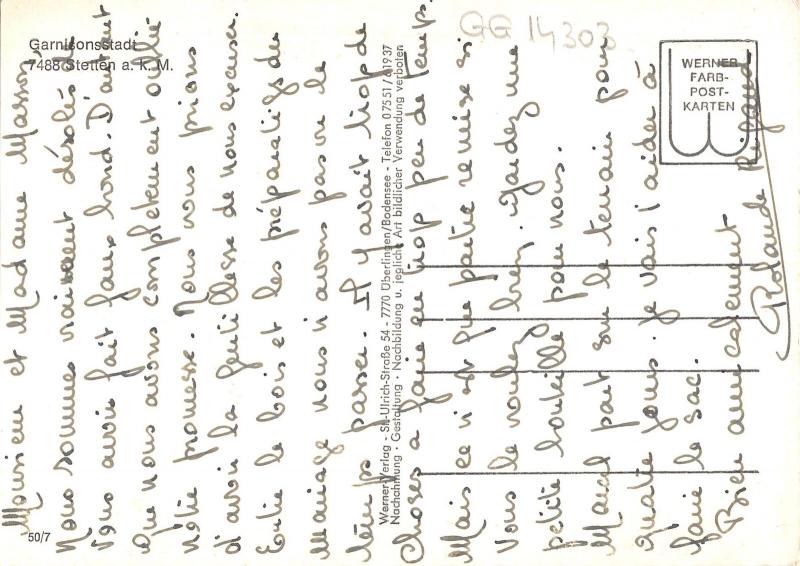 Garnisonsstadt
7488 Stetten a. k. M.
GG 14303
WERNER
FARB-
POST-
KARTEN
Werner-Verlag - St.-Ulrich-Straße 54 - 7770 Überlingen/Bodensee - Telefon 07551/61937
Nachahmung · Gestaltung · Nachbildung u. jegliche Art bildlicher Verwendung verboten
50/7
Monsieur et Madame Masson
Nous sommes vraiment désolés de
vous avoir fait faux bond. D'autant
que nous avons complètement oublié
notre promesse. Nous vous prions
d'avoir la gentillesse de nous excuser.
Entre le bois et les préparatifs du
mariage nous n'avons pas vu le
temps passer. Il y avait trop de
choses a faire en trop peu de temps.
Mais ce n'est que partie remise si
vous le voulez bien. gardez une
petite bouteille pour nous.
Marcel part sur le terrain pour
quatre jours. je vais l'aider à
faire le sac.
Bien amicalement
Rolande